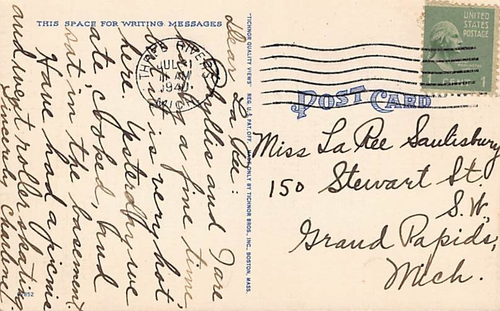 THIS SPACE FOR WRITING MESSAGES
Dear La Ree:
Phyllis and I are
having a fine time
but it is very hot
here. Yesterday we
ate, cooked, and
sat in the basement.
Have had a picnic
and went roller skating.
Sincerely, Charlene.
"TICHNOR QUALITY VIEWS" REG. U.S. PAT. OFF. MADE ONLY BY TICHNOR BROS., INC., BOSTON, MASS.
THREE RIVERS
JUL 31
AM
1940
MICH
UNITED
STATES
POSTAGE
1
POST CARD
Miss La Ree Saulisbury
150 Stewart St
S.W.
Grand Rapids,
Mich.